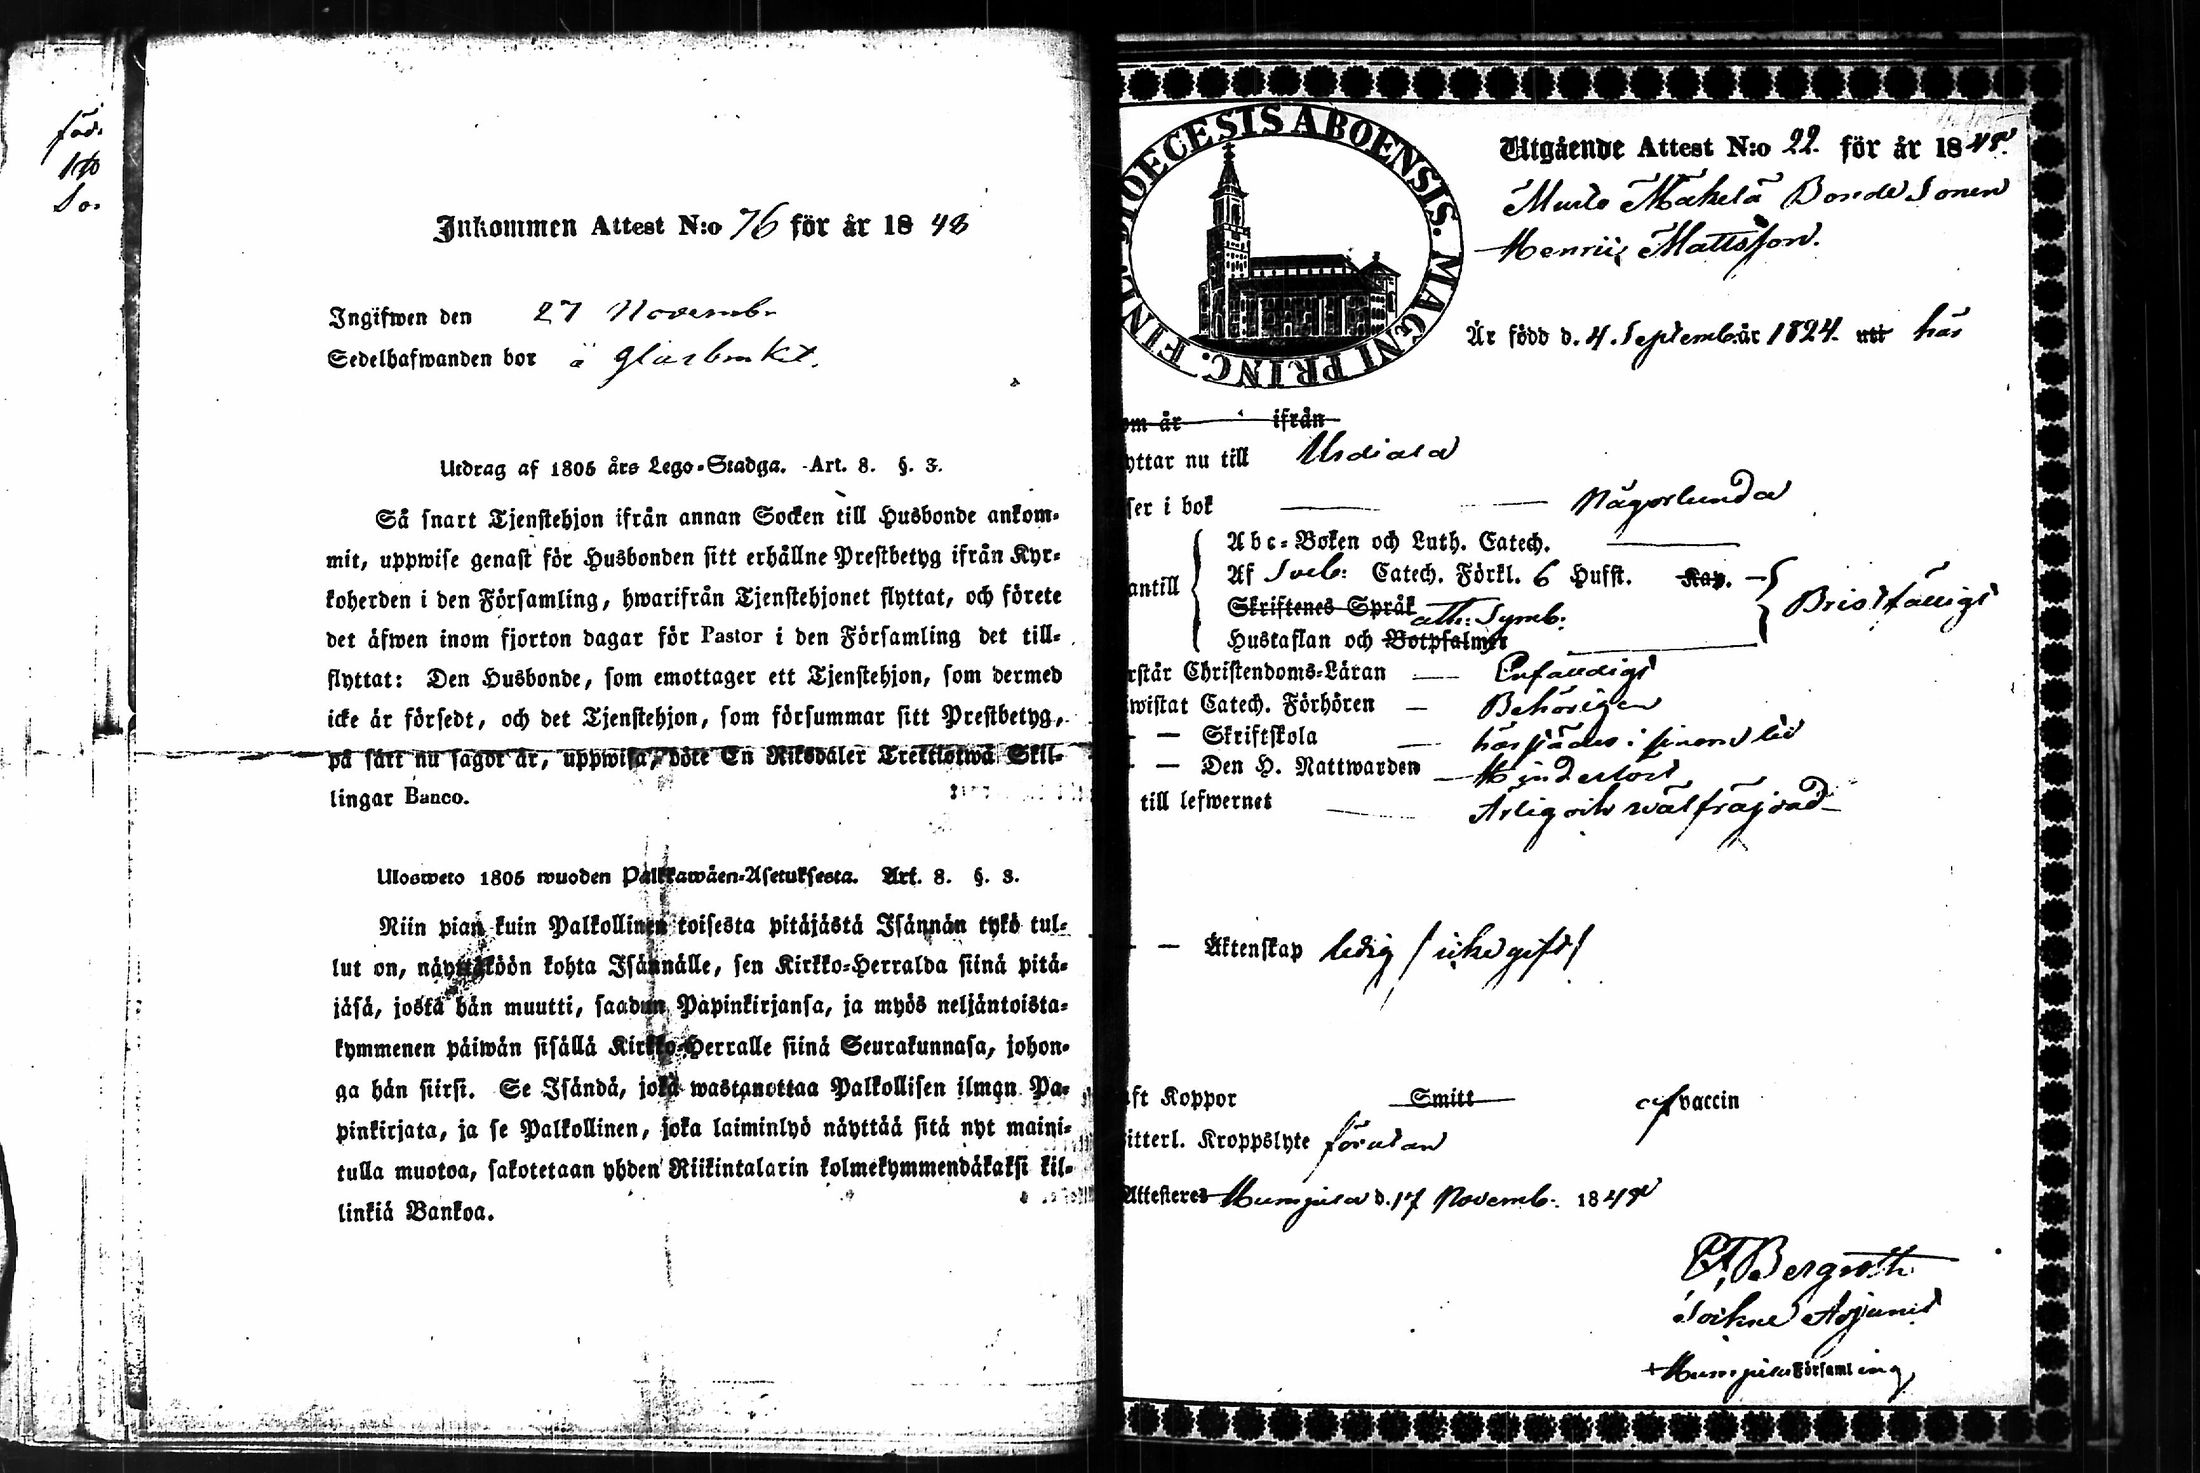 föd.
So.
Inkommen Attest N:o 76 för år 18 48
Ingifwen den 27 Novembr
Sedelhafwanden bor å Glasbruket.
Utdrag af 1805 års Lego-Stadga. Art. 8. §. 3.
Så snart Tjenstehjon ifrån annan Socken till Husbonde ankom-
mit, uppwise genast för Husbonden sitt erhållne Prestbetyg ifrån Kyr-
koherden i den Församling, hwarifrån Tjenstehjonet flyttat, och förete
det äfwen inom fjorton dagar för Pastor i den Församling det till-
flyttat: Den Husbonde, som emottager ett Tjenstehjon, som dermed
icke är försedt, och det Tjenstehjon, som försummar sitt Prestbetyg,
på sätt nu sagdt är, uppwisa, böte En Riksdaler Trettiotwå Skil-
lingar Banco.
Ulosweto 1805 wuoden Palkkawäen-Asetuksesta. Art. 8. §. 3.
Niin pian kuin Palkollinen toisesta pitäjästä Isännän tykö tul-
lut on, näyttäköön kohta Isännälle, sen Kirkko-Herralda siinä pitä-
jäsä, josta hän muutti, saadun Papinkirjansa, ja myös neljäntoista-
kymmenen päiwän sisällä Kirkko-Herralle siinä Seurakunnasa, johon-
ga hän siirsi. Se Isändä, joka wastanottaa Palkollisen ilman Pa-
pinkirjata, ja se Palkollinen, joka laiminlyö näyttää sitä nyt maini-
tulla muotoa, sakotetaan yhden Riikintalarin kolmekymmendäkaksi kil-
linkiä Bankoa.
DIOECESIS ABOENSIS. MAGNI PRINC. FINL.
Utgående Attest N:o 22. för år 1848.
Mäkelä Bonde Sonen
Henric Mattsson.
Är född d. 4. Septemb. år 1824. uti här
om år ifrån
yttar nu till Urdiala
ser i bok Någorlunda
Abc-Boken och Luth. Catech.
antill Af Sveb: Catech. Förkl. 6 Hufst. Kap.
Skriftenes Språk Ath: Symb: Bristfälligt
Hustaflan och Botpsalmer
rstår Christendoms-Läran Enfaldigt
wistat Catech. Förhören Behörigen
— Skriftskola härstädes i sinom tid
— Den H. Nattwarden Hindertöst
till lefwernet Ärlig och wälfräjdad
— Äktenskap ledig / icke gift /
aft Koppor Smitt af vaccin
itterl. Kroppslyte förutan
Attesteres Humppila d. 17 Novemb. 1848
Bergroth
Sockne Adjunct
Humppila Församling